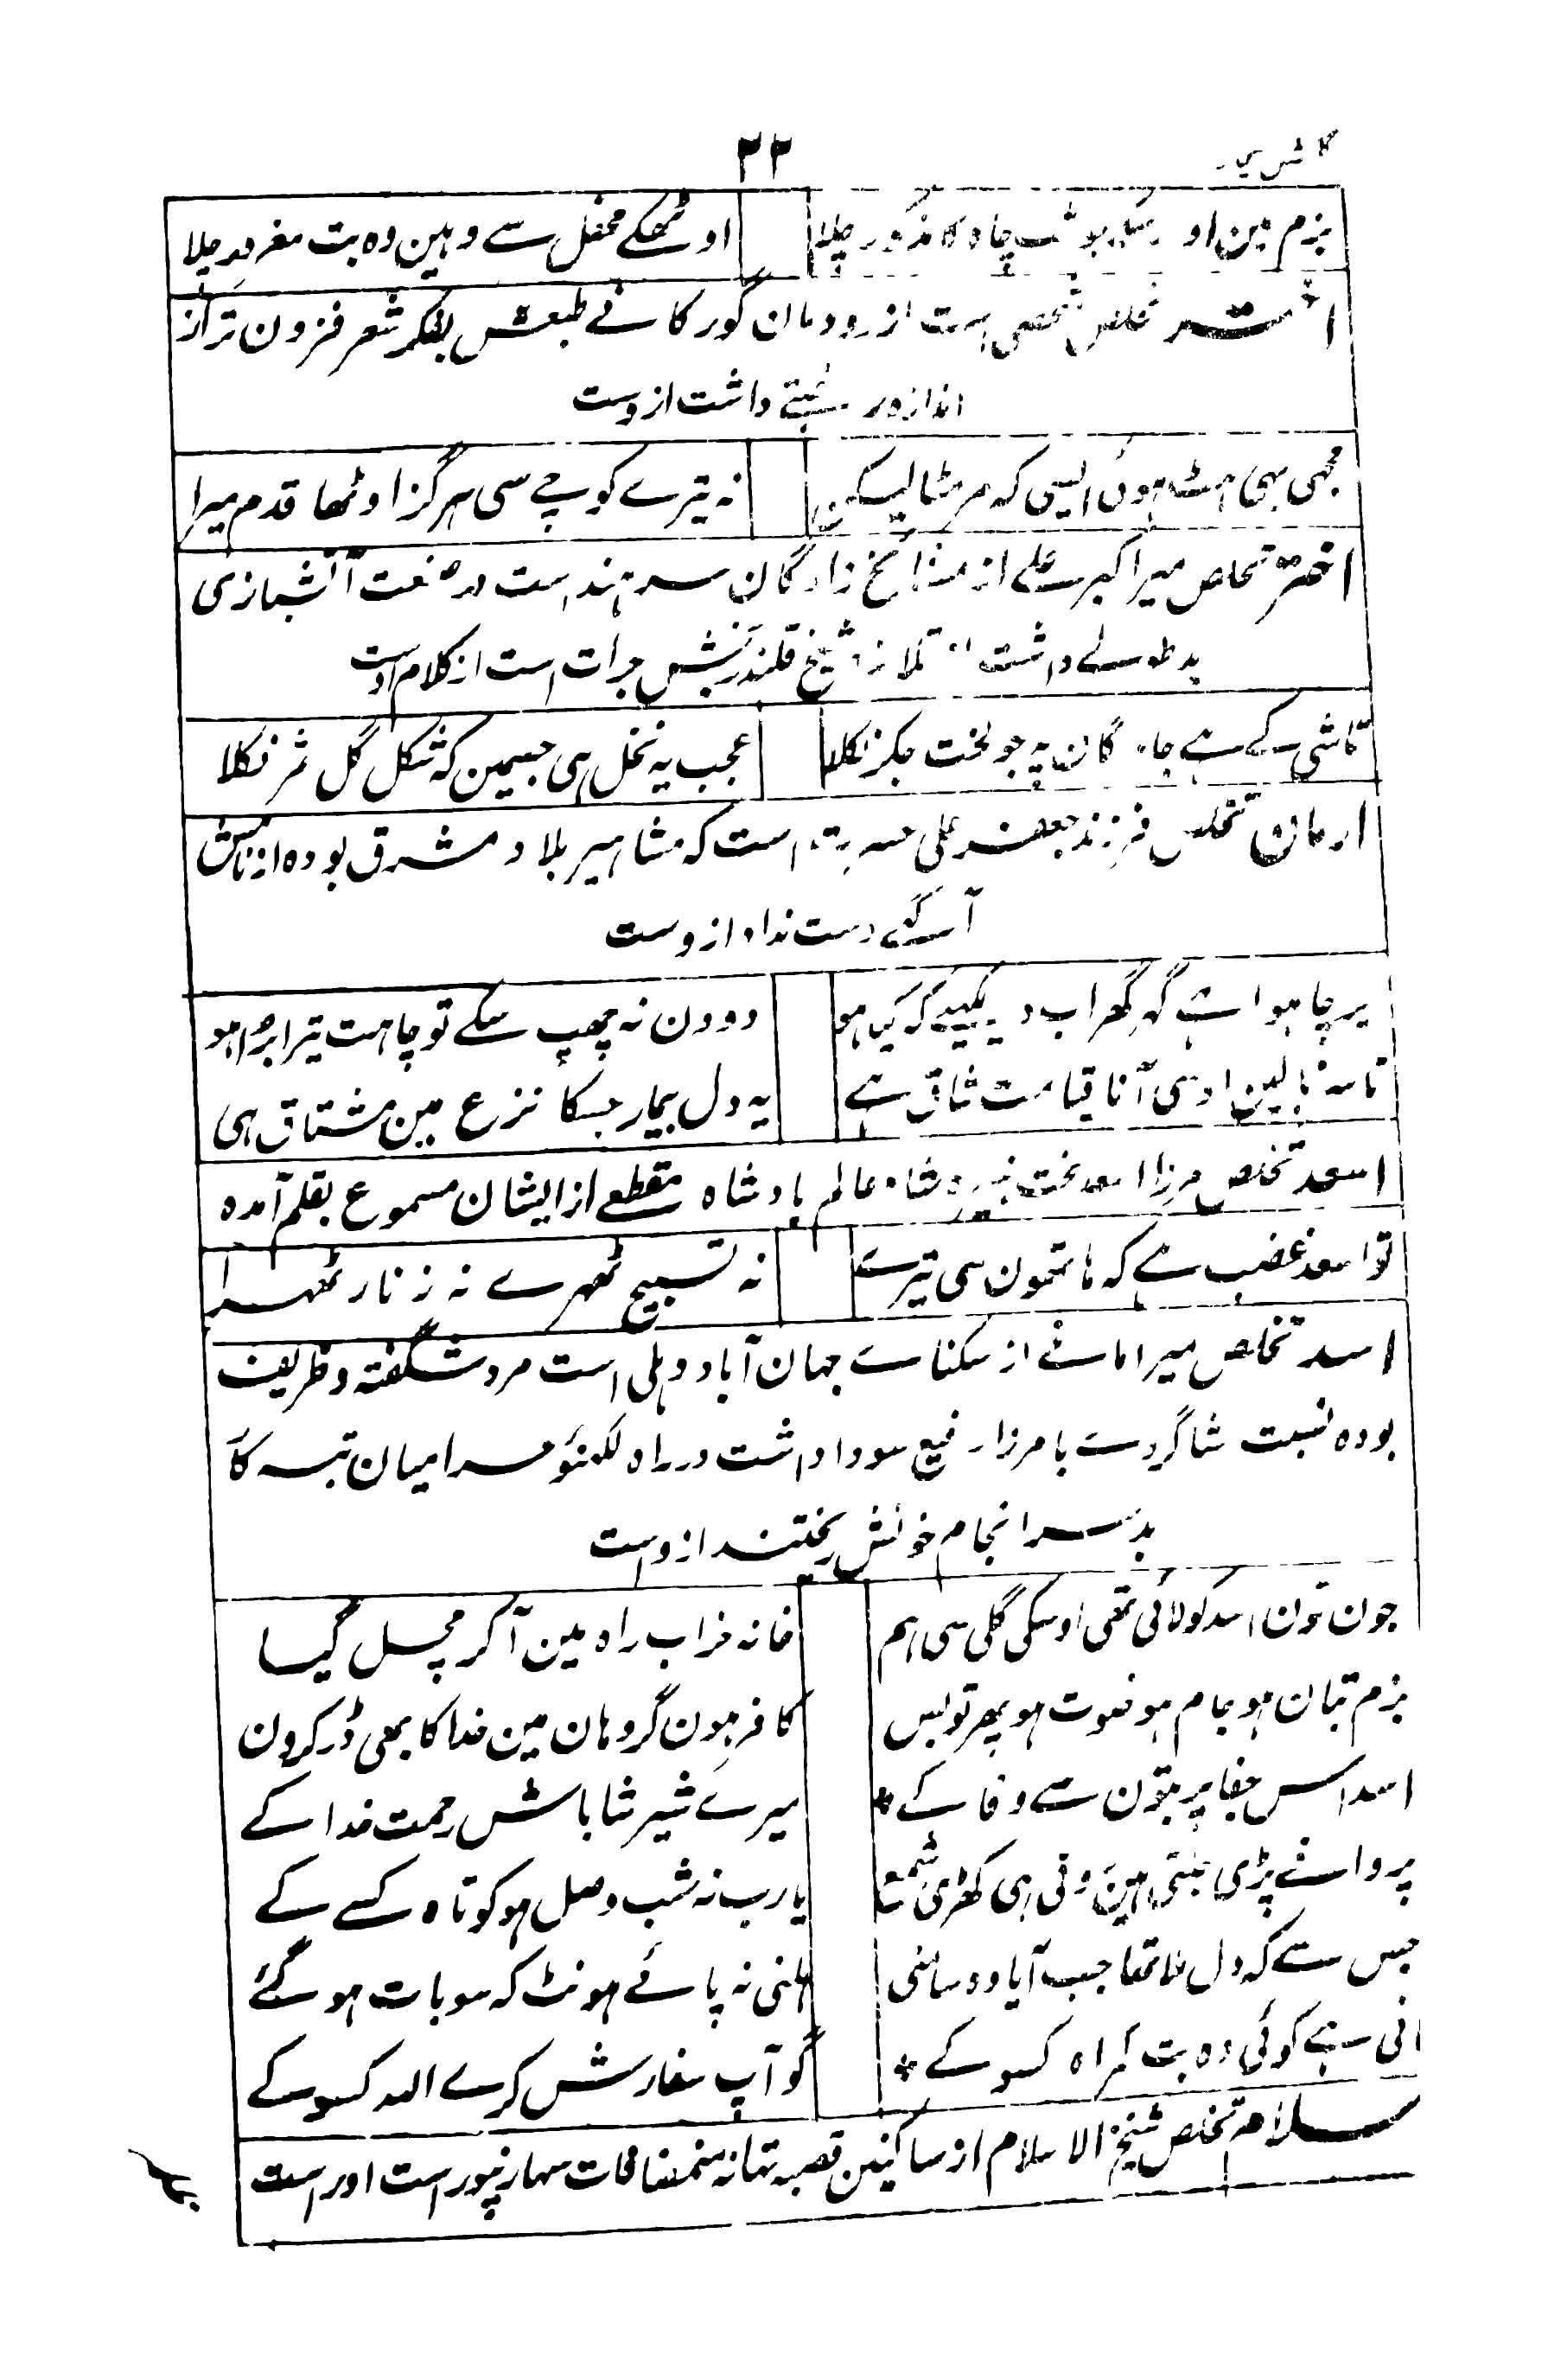 ۲۲
بزم مین او چاہ کا مذکور چلا اوٹھکے محفل سے وہین وہ بت مغرور چلا
تخلص شخصی ہست از دودمان گورکانے طبعش بفکر شعر فزون تر از
اندازہ نسبتے داشت ازوست
مجھی بھی ہٹ ہوئی ایسی کہ مر مٹا لیکن نہ تیرے کوچے سی ہرگز اوٹھا قدم میرا
اختر تخلص میر اکبر علے از مشایخ زادگان سرہند است در صنعت آتشبازی
ید طولے داشت از تلامذہ شیخ قلندر بخش جرات است از کلام اوست
تماشی کے ہے جا گان پہ جو لخت جگر نکلا عجب یہ نخل ہی جسمین کہ شکل گل ثمر نکلا
ارمان تخلص فرزند جعفر علی حسرت است کہ مشاہیر بلاد مشرق بودہ از نامش
آگہے دست نداد ازوست
پرچا ہوا ہے گھر گھر اب دیکھیے کہ کیا ہو دو دن نہ چھپ سکے تو چاہت تیرا برا ہو
تا سر بالین اوسی آنا قیامت شاق ہے یہ دل بیمار جسکا نزع مین مشتاق ہی
اسعد تخلص مرزا اسعد بخت نبیرہ شاہ عالم بادشاہ مقطعے از ایشان مسموع بقلم آمدہ
تو اسعد غضب ہے کہ ہاتھون سی تیرے نہ تسبیح ٹھرے نہ زنار ٹھہرا
اسد تخلص میر امانے از سکناے جہان آباد دہلی است مرد شگفتہ و ظریف
بودہ نسبت شاگردے با مرزا رفیع سودا داشت در راہ لکھنؤ سرامیان تبہ کا
بد سرانجام خونش ریختند ازوست
جون تون اسد کو لائی تھی اوسکی گلی سی ہم خانہ خراب راہ مین آ کر مچل گیا
بزم بتان ہو جام ہو خلوت ہو پھر تو بس کافر ہون گر وہان مین خدا کا بھی ڈر کرون
اسد اس جفا پر بتون سے وفا کے * میرے شیر شاباش رحمت خدا کے
پروانے پڑی جلتی ہین روتی ہی کھڑی شمع یا رب نہ شب وصل ہو کوتاہ کسے کے
جس سے کہ دل ملا تھا جب آیا وہ سامنی ہلنی نہ پائے ہونٹ کہ سو بات ہو گئے
انی ہے کوئی وہ بت گمراہ کسو کے * گو آپ سفارش کرے اللہ کسو کے
سلام تخلص شیخ الاسلام از ساکنین قصبہ تہانہ منمضافات سہارنپور است اوراست